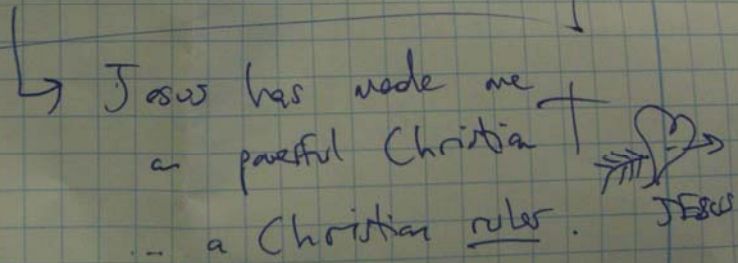 Jesus has made me
a powerful Christian
... a Christian ruler.
JESUS